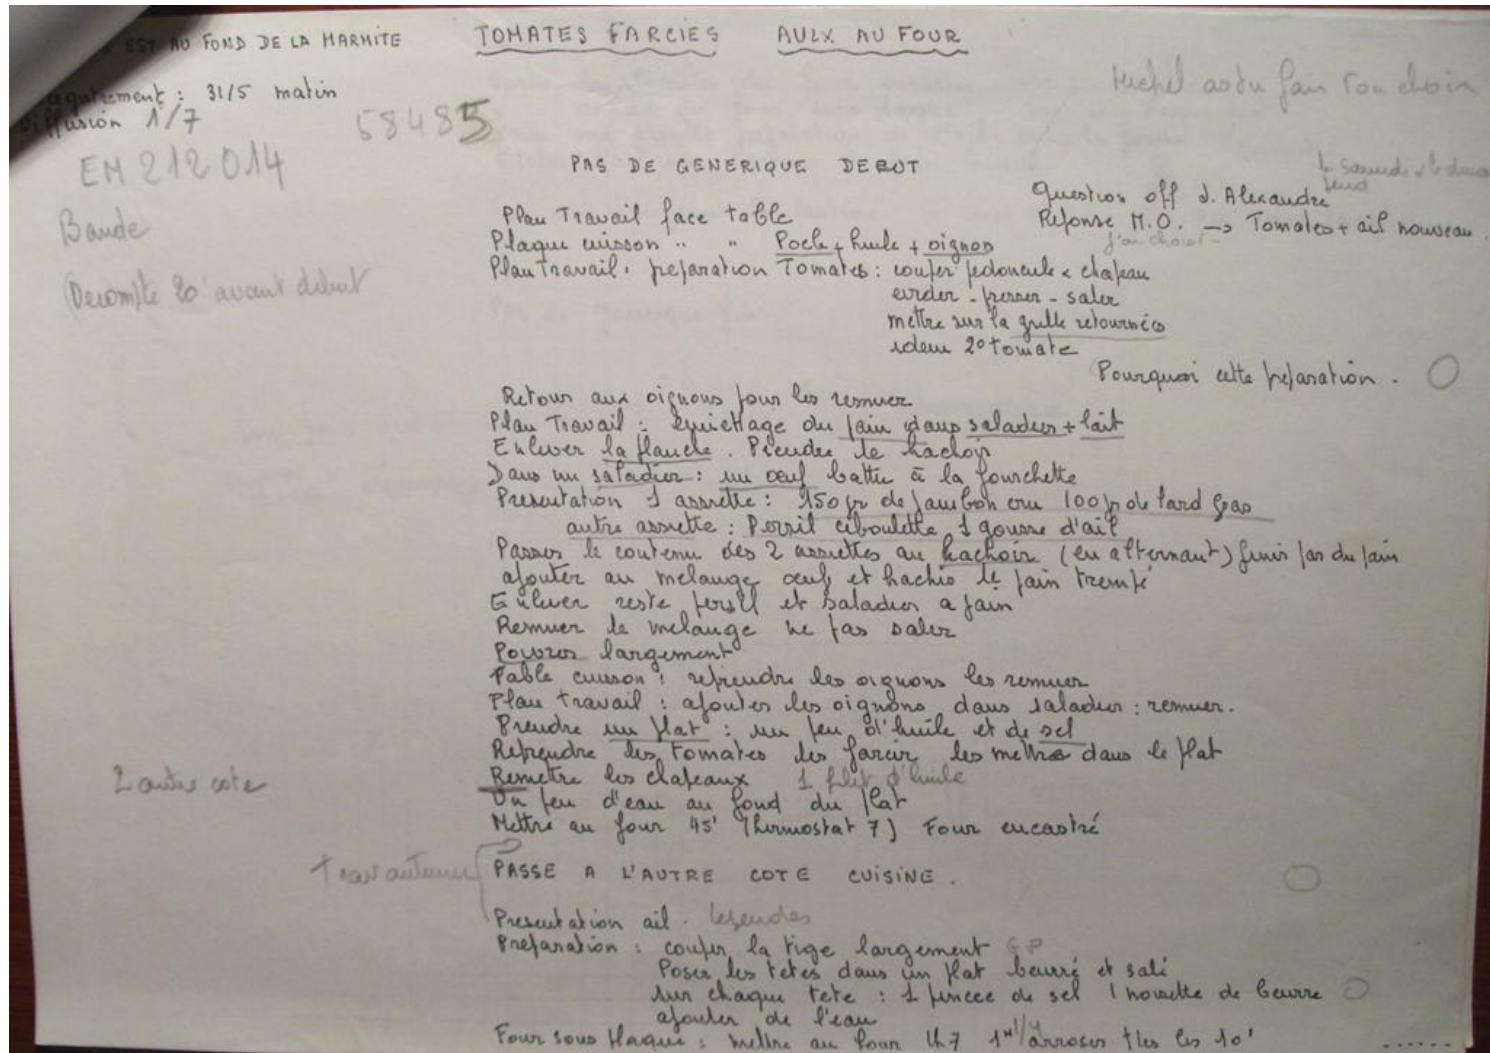 EST AU FOND DE LA MARMITE TOMATES FARCIES AULX AU FOUR
Michel as tu fait ton choix
: 31/5 matin
Diffusion 1/7
58485
EM 212014
PAS DE GENERIQUE DEBUT
Bande
Question off J. Alexandre
Plan Travail face table
Reponse M.O. → Tomates + ail nouveau.
Plaque cuisson " " Poele + huile + oignon
j'ai choisi
Plan Travail : preparation Tomates : couper pedoncule & chapeau
(Decompte 20' avant debut
evider - presser - saler
mettre sur la grille retournées
idem 2° tomate
Pourquoi cette preparation.
Retour aux oignons pour les remuer
Plan Travail : emiettage du pain dans saladier + lait
Enlever la planche. Prendre le hachoir
Dans un saladier : un oeuf battu à la fourchette
Presentation 1 assiette : 150 gr de jambon cru 100 gr de lard gras
autre assiette : Persil ciboulette 1 gousse d'ail
Passer le contenu des 2 assiettes au hachoir (en alternant) finir par du pain
ajouter au melange oeuf et hachis le pain trempé
Enlever reste persil et saladier a pain
Remuer le melange ne pas saler
Poivrer largement
Table cuisson : reprendre les oignons les remuer
Plan travail : ajouter les oignons dans saladier : remuer.
Prendre un plat : un peu d'huile et de sel
Reprendre les tomates les farcir les mettre dans le plat
2 autre cote
Remettre les chapeaux 1 filet d'huile
Un peu d'eau au fond du plat
Mettre au four 45' Thermostat 7) Four encastré
PASSE A L'AUTRE COTE CUISINE.
Presentation ail. legendes
Preparation : couper la tige largement GP
Poser les tetes dans un plat beurré et salé
sur chaque tete : 1 pincee de sel 1 noisette de beurre
ajouter de l'eau
Four sous plaque : mettre au four th 7 1H1/4 arroser ttes les 10'